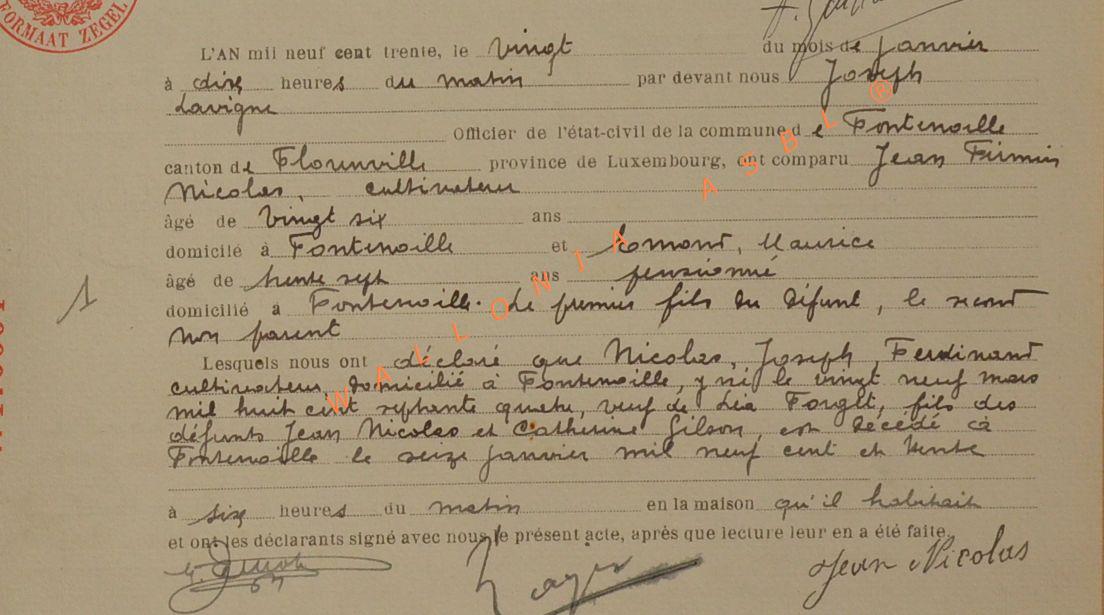 FORMAAT ZEGEL
L'AN mil neuf cent trente, le vingt du mois de janvier
à dix heures du matin par devant nous Joseph
Lavigne
Officier de l'état-civil de la commune de Fontenoille
canton de Florenville province de Luxembourg, ont comparu Jean Firmin
Nicolas, cultivateur
âgé de vingt six ans
domicilié à Fontenoille et Lomond, Maurice
âgé de trente sept ans pensionné
domicilié à Fontenoille. Le premier fils du défunt, le second
non parent
Lesquels nous ont déclaré que Nicolas, Joseph, Ferdinand
cultivateur, domicilié à Fontenoille, y né le vingt neuf mars
mil huit cent septante quatre, veuf de Léa Forget, fils des
défunts Jean Nicolas et Catherine Gilson, est décédé à
Fontenoille le seize janvier mil neuf cent et trente
à six heures du matin en la maison qu'il habitait
et ont les déclarants signé avec nous le présent acte, après que lecture leur en a été faite.
Jean Nicolas
1
WALLONIA ASBL ®